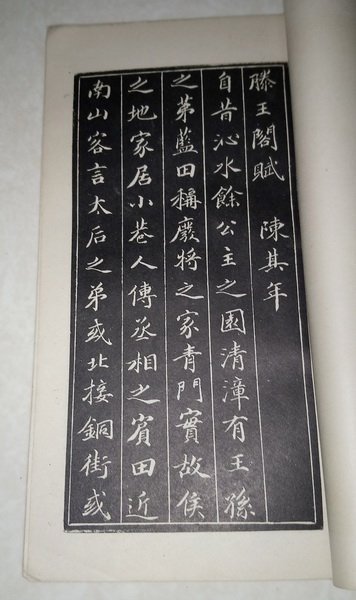 滕王閣賦 陳其年
自昔沁水餘公主之園清漳有王孫
之第藍田稱廢將之家青門實故侯
之地家居小巷人傳丞相之賓田近
南山客言太后之弟或北接銅街或